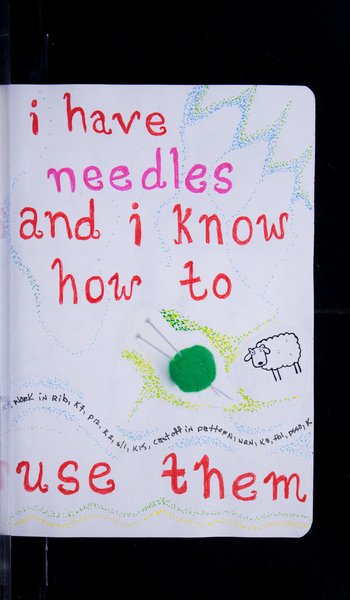 i have
needles
and i know
how to
work in rib, k7, p12, k2, s/1, k15, castoff in pattern, wrn, k3, tbl, psso, k
use them